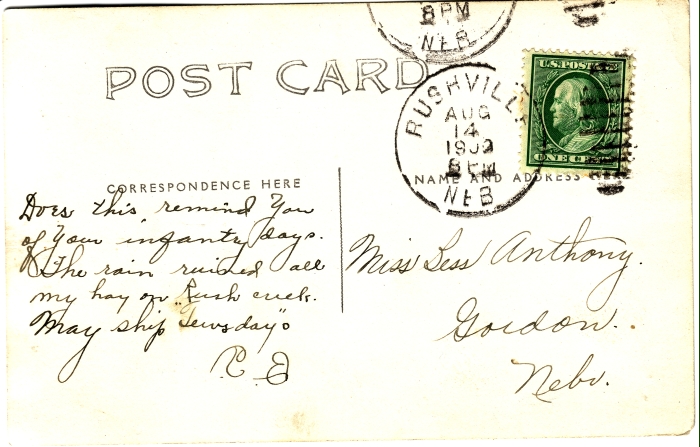 8 PM
NEB
POST CARD
RUSHVILLE
AUG
14
1909
8 PM
NEB
U.S. POSTAGE
ONE CENT
CORRESPONDENCE HERE
NAME AND ADDRESS
Does this remind You
of Your infantry days.
The rain ruined all
my hay on "Rush creek.
May ship Tewsday"
Miss Bess Anthony.
Gordon.
Nebr.